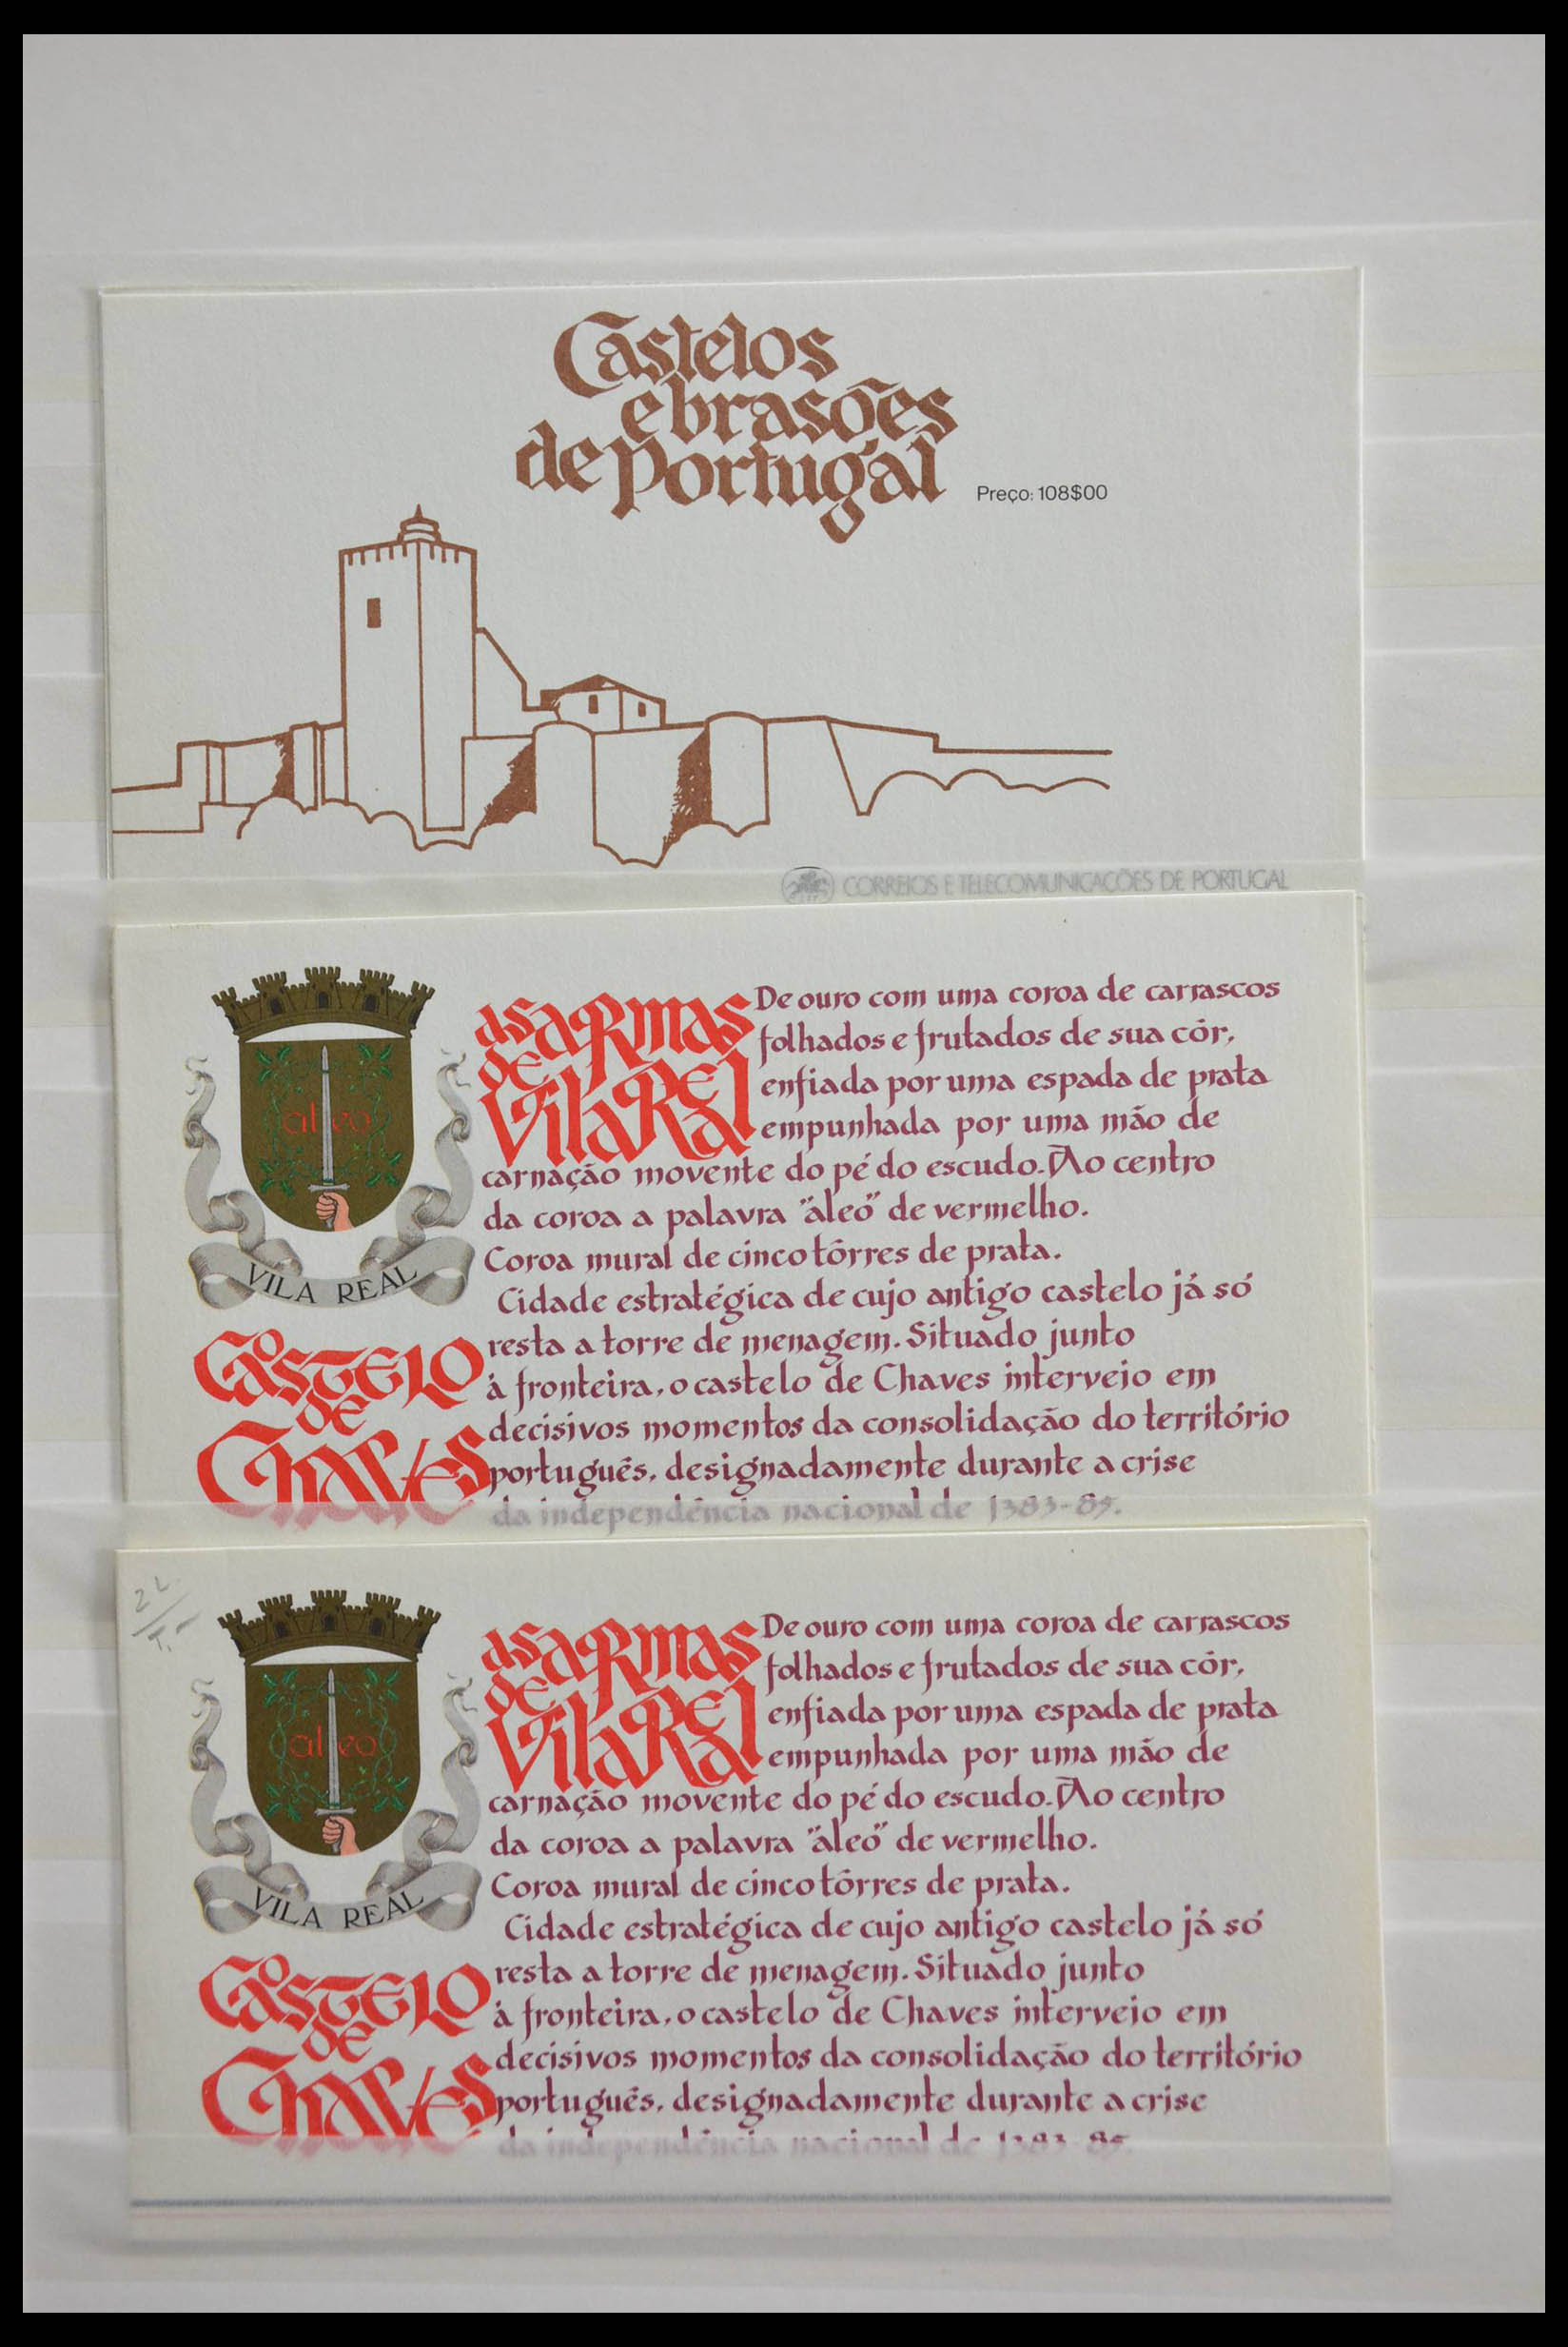 Castelos
e brasões
de Portugal
Preço: 108$00
CORREIOS E TELECOMUNICAÇÕES DE PORTUGAL
aleo
VILA REAL
As Armas
de
Vila Real
De ouro com uma coroa de carrascos
folhados e frutados de sua côr,
enfiada por uma espada de prata
empunhada por uma mão de
carnação movente do pé do escudo. Ao centro
da coroa a palavra "áleo" de vermelho.
Coroa mural de cinco tôrres de prata.
Cidade estratégica de cujo antigo castelo já só
resta a torre de menagem. Situado junto
à fronteira, o castelo de Chaves interveio em
decisivos momentos da consolidação do território
português, designadamente durante a crise
da independência nacional de 1383-85.
O Castelo
de
Chaves
aleo
VILA REAL
As Armas
de
Vila Real
De ouro com uma coroa de carrascos
folhados e frutados de sua côr,
enfiada por uma espada de prata
empunhada por uma mão de
carnação movente do pé do escudo. Ao centro
da coroa a palavra "áleo" de vermelho.
Coroa mural de cinco tôrres de prata.
Cidade estratégica de cujo antigo castelo já só
resta a torre de menagem. Situado junto
à fronteira, o castelo de Chaves interveio em
decisivos momentos da consolidação do território
português, designadamente durante a crise
da independência nacional de 1383-85.
O Castelo
de
Chaves